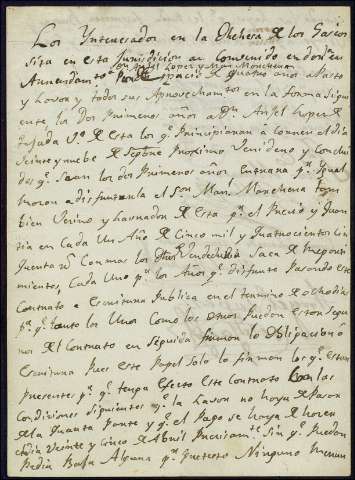 Los Ynteresados en la Dehesa de los Gascos
sita en esta Jurisdicion an combenido en dar en
dn Anjel Lopez y Man.l Monchera
Arrendamto por espacio de quatro años a Pasto
y Lavor y todos sus Aprovechamtos en la forma sigui
ente la dos Primeros años a Dn Anjel Lopez de
Tejada Vº de esta los q.e Principiaran a Correr el dia
Veinte y nuebe de Septre Proximo Venidero y Conclui
dos q.e sean los dos Primeros años Entrara p.r Igual
a disfrutarla el sor Man.l Monchera tam
bien Vecino y Labrador de Esta p.r el Precio y Quan
tia en Cada Un Año de Cinco mil y Quatrocientos Cin
quenta rs Con mas los
mientos, Cada Uno p.r los Años q.e disfrute Pasando este
Contrato a Escritura Publica en el termino de ocho dias
p.a q.e tanto los Unos Como los otros Puedan estar segu
ros del Contrato en seguida firman la Obligacion ó
Escritura Pues este Papel Solo lo firman los q.e estan
Presentes p.a q.e tenga efecto Este Contrato Con las
Condiciones siguientes q.e la Lavor no haya de Pasar
de la Quarta Parte y q.e el Pago se haya de hacer
el dia Veinte y Cinco de Abril Precisamte Sin q.e Puedan
Pedir Baja Alguna p.r Pretesto Ninguno